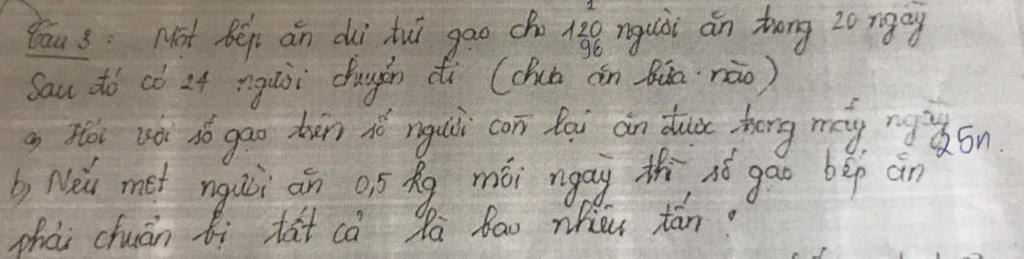 Câu 3: Một bếp ăn dự trữ gạo cho 120 người ăn trong 20 ngày
96
Sau đó có 24 người chuyển đi (chưa ăn bữa nào)
a) Hỏi với số gạo trên số người còn lại ăn được trong mấy ngày
25n.
b) Nếu một người ăn 0,5 kg mỗi ngày thì số gạo bếp ăn
phải chuẩn bị tất cả là bao nhiêu tấn?